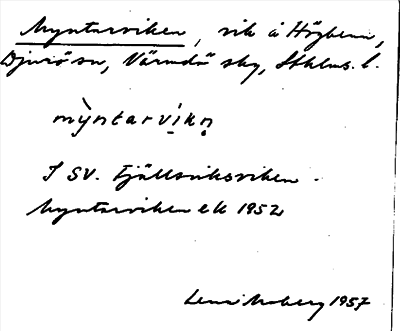 Myntarviken, vik å Högbenn,
Djurö sn, Värmdö skg, Sthlms. l.
mỳntarvi̠kṇ
I SV. Fjällsviksviken.
Myntarviken ek 1952
Lena Moberg 1957